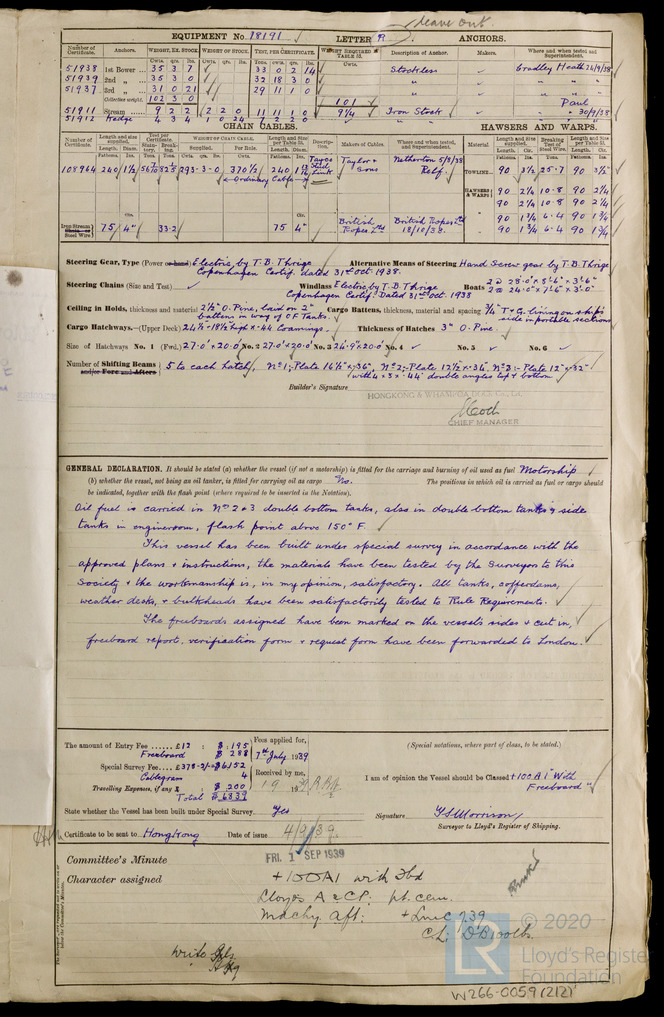 leave out.
EQUIPMENT No. 18191 LETTER R ANCHORS.
Number of Certificate. Anchors. WEIGHT, EX. STOCK. WEIGHT OF STOCK. TEST, PER CERTIFICATE. WEIGHT REQUIRED BY TABLE 53. Description of Anchor. Makers. Where and when tested and Superintendent.
Cwts. qrs. lbs. Cwts. qrs. lbs. Tons. cwts. qrs. lbs. Cwts.
51938 1st Bower 35 3 7 33 0 2 14 Stockless Cradley Heath 26/9/38
51939 2nd 35 3 0 32 18 3 0
51937 3rd 31 0 21 29 11 1 0
Collective weight. 102 3 0 101 Paul
51911 Stream 9 2 2 2 2 0 11 11 1 0 9¼ Iron Stock 30/9/38
51912 Kedge 4 3 4 1 0 24 7 2 2 0
CHAIN CABLES. HAWSERS AND WARPS.
Number of Certificate. Length and size supplied. Test per Certificate. WEIGHT OF CHAIN CABLE. Length and Size per Table 53. Description. Makers of Cables. Where and when tested, and Superintendent. Material Length and Size supplied. Breaking Test of Steel Wire. Length and Size per Table 53.
Fathoms. Diam. Statutory. Breaking. Supplied. Per Rule. Fathoms. Diam. Fathoms. Cir. Tons. Fathoms. Cir.
108964 240 293-3-0 370½ 240 Tayco Stud Link Taylor & Sons Netherton 5/9/38 Relf. TOWLINE 90 3½ 25·7 90 3½"
Ordinary Cable
HAWSERS & WARPS 90 2¼ 10·8 90 2¼
90 2¼ 10·8 90 2¼
90 1¾ 6·4 90 1¾
Iron Stream Chain or Steel Wire 75 4" 33·2 75 4" British Ropes Ltd British Ropes Ltd 18/10/38. 90 1¾ 6·4 90 1¾
Steering Gear, Type (Power or hand) Electric, by T.B. Thrige Alternative Means of Steering Hand Screw gear by T.B. Thrige
Copenhagen Certif. dated 31st Oct. 1938.
Steering Chains (Size and Test) Windlass Electric by T.B. Thrige Boats 2 @ 28·0" x 8'·6" x 3'·6"
Copenhagen Certif. Dated 31st Oct. 1938 2 @ 24·0" x 7'·6" x 3'·0"
Ceiling in Holds, thickness and material 2½" O. Pine, laid on 2" Cargo Battens, thickness, material and spacing ¾" T & G. lining on ship's
battens in way of O.F. Tanks. side in portable sections
Cargo Hatchways.—(Upper Deck) 24½ + 18½ high x ·44 Coamings. Thickness of Hatches 3" O. Pine.
Size of Hatchways No. 1 (Fwd.) 27·0' x 20·0' No. 2 27·0' x 20·0' No. 3 26·9' x 20·0' No. 4 No. 5 No. 6
Number of Shifting Beams and/or Fore and Afters 5 to each hatch, No 1:- Plate 16½" x ·36", No 2:- Plate 12½ x ·34", No 3:- Plate 12" x ·32"
with 4 x 3 x ·44" double angles top & bottom
Builder's Signature
HONGKONG & WHAMPOA DOCK Co., Ltd.
CHIEF MANAGER
GENERAL DECLARATION. It should be stated (a) whether the vessel (if not a motorship) is fitted for the carriage and burning of oil used as fuel Motorship
(b) whether the vessel, not being an oil tanker, is fitted for carrying oil as cargo No. The positions in which oil is carried as fuel or cargo should
be indicated, together with the flash point (where required to be inserted in the Notation).
Oil fuel is carried in Nos 2 & 3 double bottom tanks, also in double bottom tanks & side
tanks in engineroom, flash point above 150° F.
This vessel has been built under special survey in accordance with the
approved plans & instructions, the materials have been tested by the Surveyors to this
Society & the workmanship is, in my opinion, satisfactory. All tanks, cofferdams,
weather decks, & bulkheads have been satisfactorily tested to Rule Requirements.
The freeboards assigned have been marked on the vessels sides & cut in,
freeboard report, verification form & request form have been forwarded to London.
The amount of Entry Fee £12 : $ 195 Fees applied for, (Special notations, where part of class, to be stated.)
Freeboard $ 288 7th July 1939
Special Survey Fee £378-2/- $6152 Received by me,
Callegram 4 I am of opinion the Vessel should be Classed +100 A1 "With
Travelling Expenses, if any $ 200 Freeboard"
Total $6839
State whether the Vessel has been built under Special Survey. Yes Signature
Surveyor to Lloyd's Register of Shipping.
Certificate to be sent to Hongkong Date of issue 4/9/39.
Committee's Minute FRI. 1 SEP 1939
Character assigned +100A1 with Fbd
Lloyds A & CP. pt. cem.
Machy Aft: + LMC 7.39
CL: DB 100 lbs.
Write
© 2020
Lloyd's Register
Foundation
W266-0059(2/2)